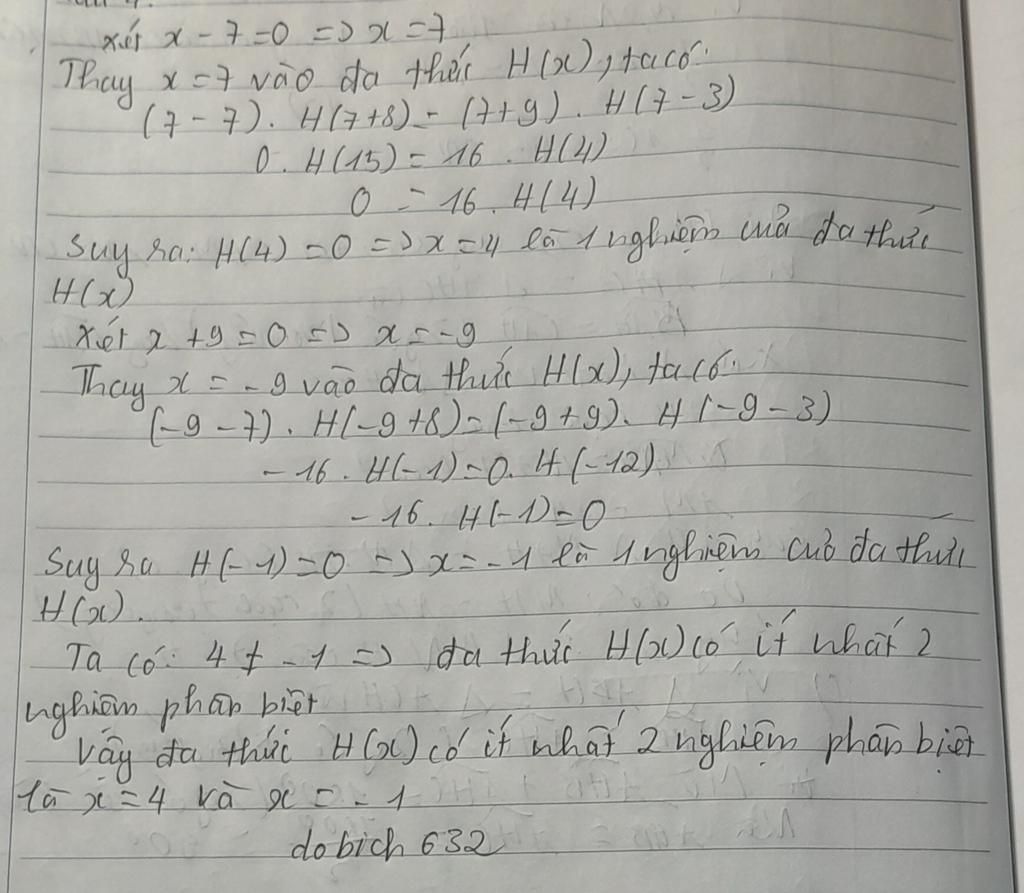 xét x - 7 = 0 => x = 7
Thay x = 7 vào đa thức H(x), ta có:
(7 - 7). H(7+8) = (7+9). H(7 - 3)
0. H(15) = 16 . H(4)
0 = 16. H(4)
Suy ra: H(4) = 0 => x = 4 là 1 nghiệm của đa thức
H(x)
Xét x + 9 = 0 => x = -9
Thay x = -9 vào đa thức H(x), ta có:
(-9 - 7). H(-9+8) = (-9+9). H(-9 - 3)
-16. H(-1) = 0. H(-12)
-16. H(-1) = 0
Suy ra H(-1) = 0 => x = -1 là 1 nghiệm của đa thức
H(x).
Ta có: 4 ≠ -1 => đa thức H(x) có ít nhất 2
nghiệm phân biệt
Vậy đa thức H(x) có ít nhất 2 nghiệm phân biệt
là x = 4 và x = -1
dobich 632